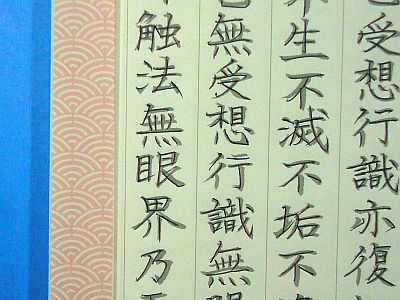 受想行識亦復
生不滅不垢不
無受想行識無
触法無眼界乃